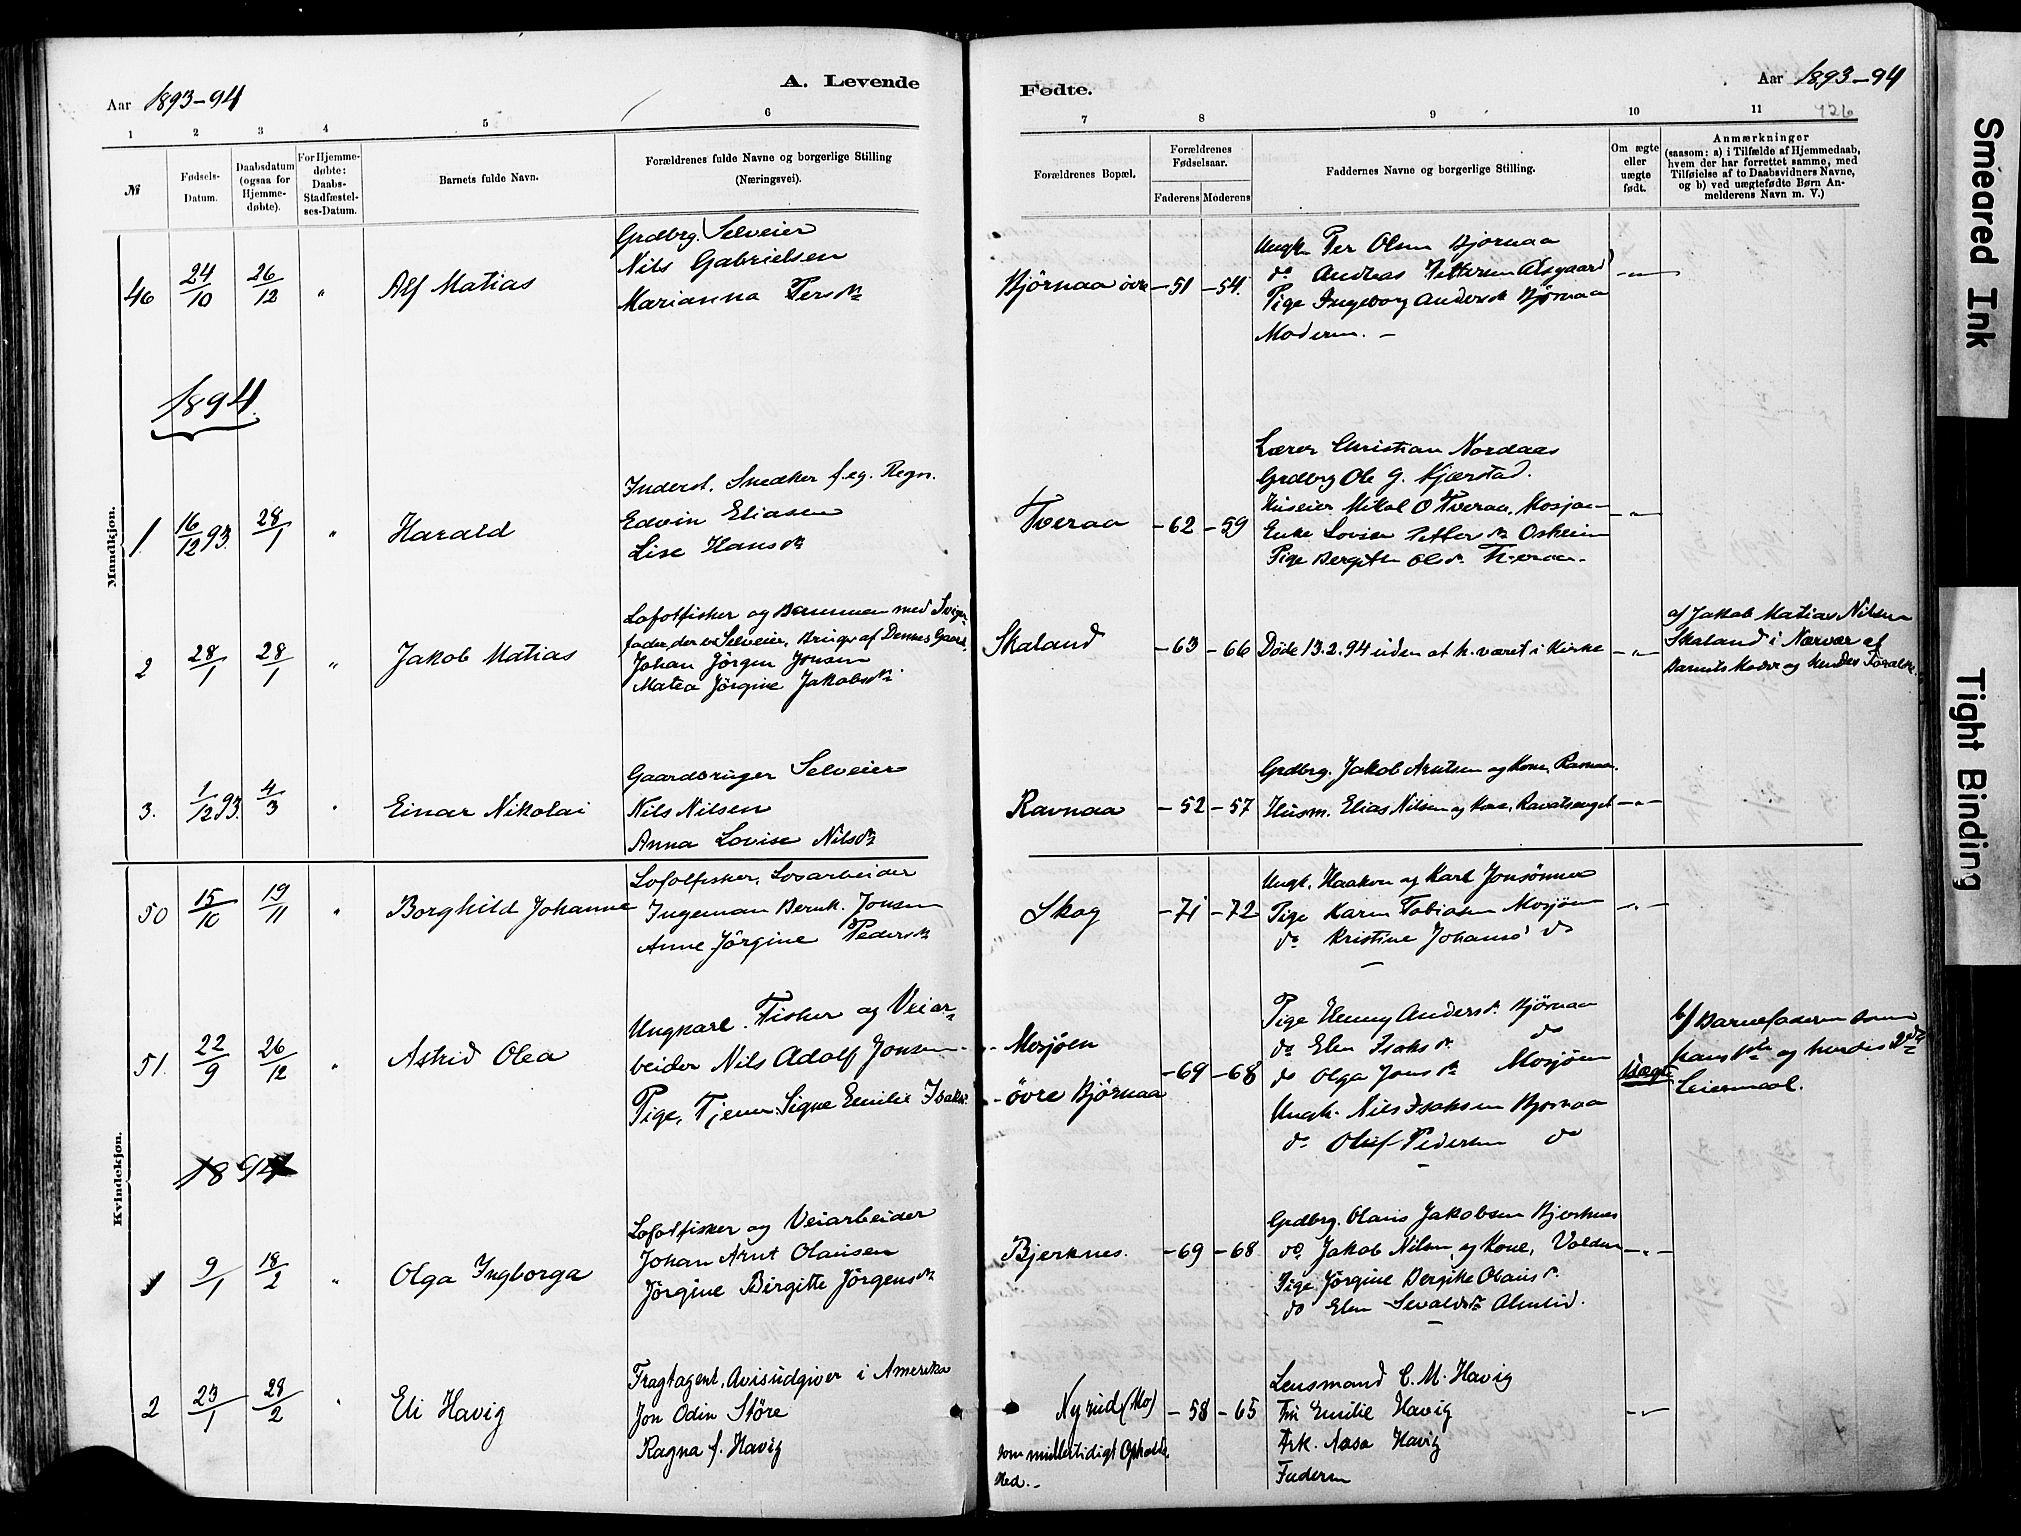 A. Levende
Fødte.
Aar 1893-94
Aar 1893-94
126
1 2 3 4 5 6 7 8 9 10 11
№
Fødsels-Datum.
Daabsdatum (ogsaa for Hjemme-døbte).
For Hjemme-døbte: Daabs-Stadfæstel-ses-Datum.
Barnets fulde Navn.
Forældrenes fulde Navne og borgerlige Stilling (Næringsvei).
Forældrenes Bopæl.
Forældrenes Fødselsaar.
Faderens Moderens
Faddernes Navne og borgerlige Stilling.
Om ægte eller uægte født.
Anmærkninger
(saasom: a) i Tilfælde af Hjemmedaab, hvem der har forrettet samme, med Tilføielse af to Daabsvidners Navne, og b) ved uægtefødte Børn An-melderens Navn m. V.)
Mandkjøn.
46 24/10 26/12 " Alf Matias
Grdbrg. Selveier
Nils Gabrielsen
Marianna Persdr
Bjørnaa øvre -51 -54.
Ungk. Per Olsen Bjørnaa
do Andreas Pettersen Aasgaard
Pige Ingeborg Andersdr Bjørnaa
Moderen. -
-"-
1894.
1. 16/12 93. 28/1 " Harald
Inderst. Snedker f. eg. Regn.
Edvin Eliasen
Lise Hansdr
Tveraa -62 -59
Lærer Christian Nordaas
Grdbrg Ole G. Kjærstad.
Huseier Mikal O Tveraa, Mosjøen
Enke Lovise Pettersdr Osheim
Pige Bergitte Olsdr Tveraa.
-"-
2 28/1 28/1 " Jakob Matias
Lofotfisker og sammen med Sviger
fader, der er Selveier, Bruger af Dennes Gaard
Johan Jørgen Jonsen
Matea Jørgine Jakobsdr
Skaland -63 -66
Døde 13.2.94 uden at h. været i Kirke
-"-
af Jakob Matias Nilsen
Skaland i Nærvær af
Barnets Moder og hendes Forældre.
3. 1/12 93. 4/3 " Einar Nikolai
Gaardbruger Selveier
Nils Nilsen
Anna Lovise Nilsdr
Ravnaa -52 -57
Grdbrg. Jakob Arntsen og Kone, Ravnaa.
Husm. Elias Nilsen og Kone,
-"-
Kvindekjøn.
50 15/10 19/11 " Borghild Johanne
Lofotfisker, Løsarbeider
Ingeman Bernh. Jonsen
Anne Jørgine Pedersdr
Skog -71 -72
Ungk. Haakon og Karl Jonsønner
Pige Karen Tobiasen Mosjøen
do Kristine Johans do
-"-
51. 22/9 26/12 " Astrid Olea
Ungkarl. Fisker og Veiar-
beider Nils Adolf Jonsen
Pige, Tjener Signe Emilie Isaksd.
Mosjøen
øvre Bjørnaa
-69 -68
Pige Henny Andersd. Bjørnaa
do Elen Isaksdr do
do Olga Jonsdr Mosjøen
Ungk. Nils Isaksen Bjørnaa
do Oluf Pedersen do
Uægte
b/ Barnefaderen som
hans 1ste og hendes 2det
Leiermaal.
1894
1 9/1 18/2 " Olga Ingborga
Lofotfisker og Veiarbeider
Johan Arnt Olausen
Jörgine Birgitte Jørgensdr
Bjerknes. -69 -68
Grdbrg. Olaus Jakobsen Bjerknes
do. Jakob Nilsen og Kone, Volden
Pige Jörgine Bergitte Olausd.
do Elen Sevaldsdr Almlid.
-"-
2 23/1 28/2 " Eli Havig
Fragtagent, Avisudgiver i Amerika
Jon Odin Støre
Ragna f. Havig
Nyrud (Mo)
som midlertidigt Opholds-
sted.-
-58 -65
Lensmand C. M. Havig
Fru Emilie Havig
Frk. Aasa Havig
Faderen
-"-
Smeared Ink
Tight Binding